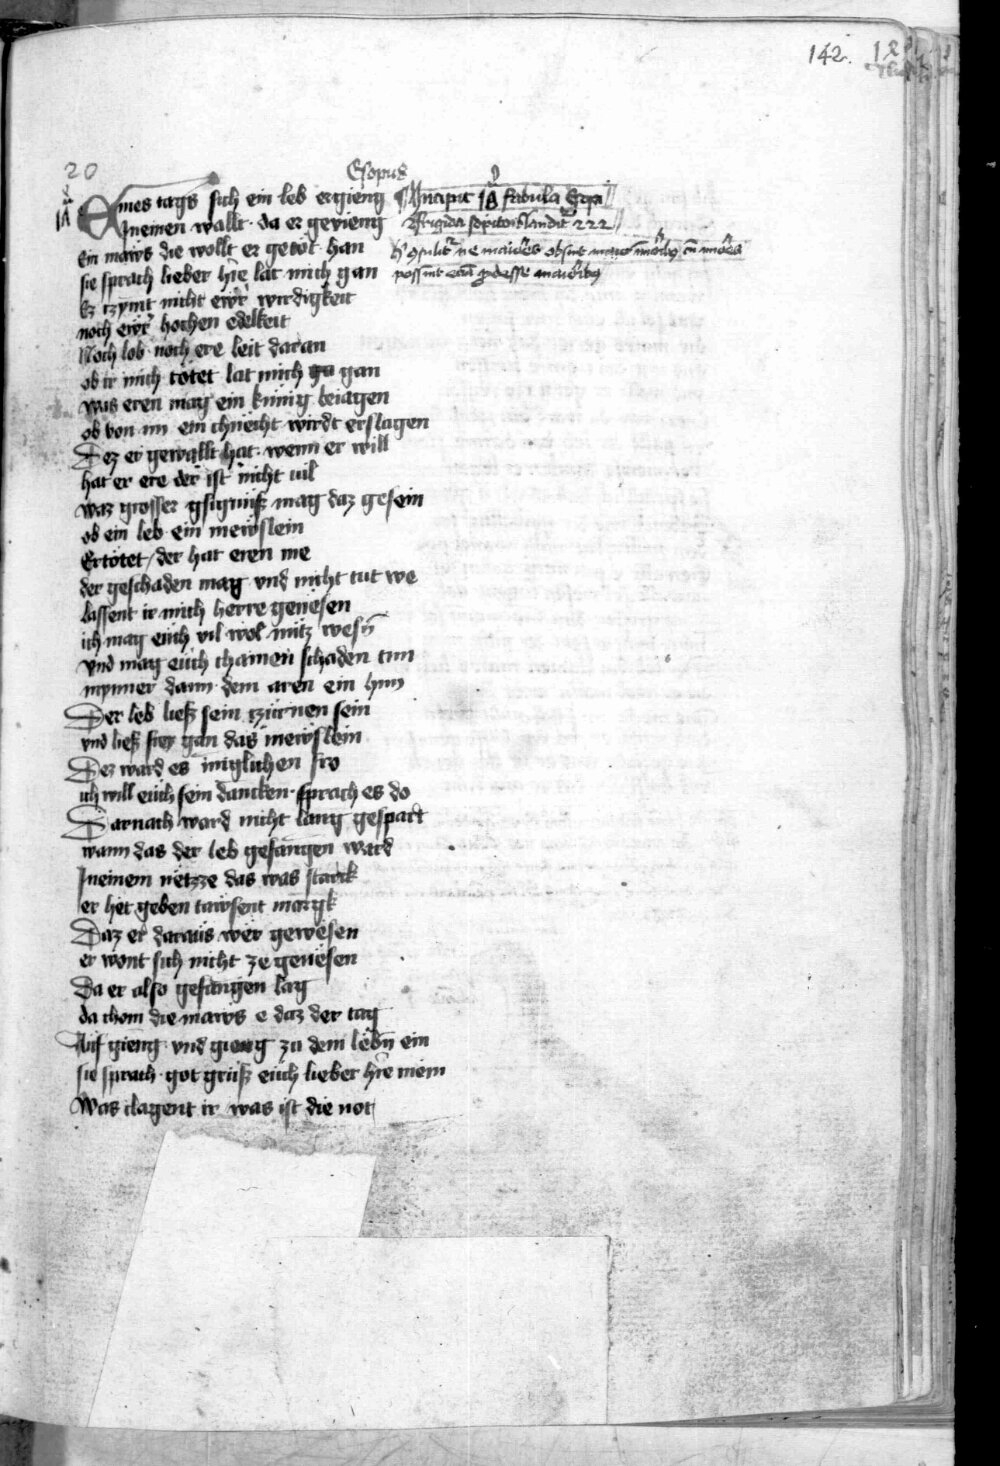 142.
20
Esopus
Eines tags sich ein leb ergieng
Jneinen wallt · da er gevieng
Ein maws die wollt er getöt · han
sie sprach lieber hre lat mich gan
Ez tzymt nicht ewr wirdigkeit
noch ewr hochen edelkeit
Noch lob · noch ere leit daran
ob ir mich tötet lat mich gan
was eren mag ein künig beiagen
ob von im ein chnecht wirdt erslagen
Dez er gewallt hat · wenn er will
hat er ere der ist nicht uil
waz grosser gsignüß mag daz gesein
ob ein leb ein mewslein
Ertötet / der hat eren me
der geschaden mag vnd nicht tut we
lassent ir mich herre genesen
ich mag euch vil wol nütz wesn
vnd mag euch chainen schaden tun
mynner dann dem aren ein hun
Der leb ließ sein zürnen sein
vnd ließ frey gan das mewslein
Dez ward es iniglichen fro
ich will euch sein dancken · sprach es do
Darnach ward nicht lang gespart
wann das der leb gefangen ward
Jneinem netzze das was starck
er het geben tawsent margk
Daz er daraus wer gewesen
er wont sich nicht ze genesen
Da er also gefangen lag
da chom die maws e daz der tag
Auf gieng vnd gieng zu dem lebn ein
sie sprach · got grüß euch lieber hre mein
Was clagent ir was ist die not
Incipit 18 fabula Esopi
Frigida sopitor blandit
possint eciam prodesse maioribus